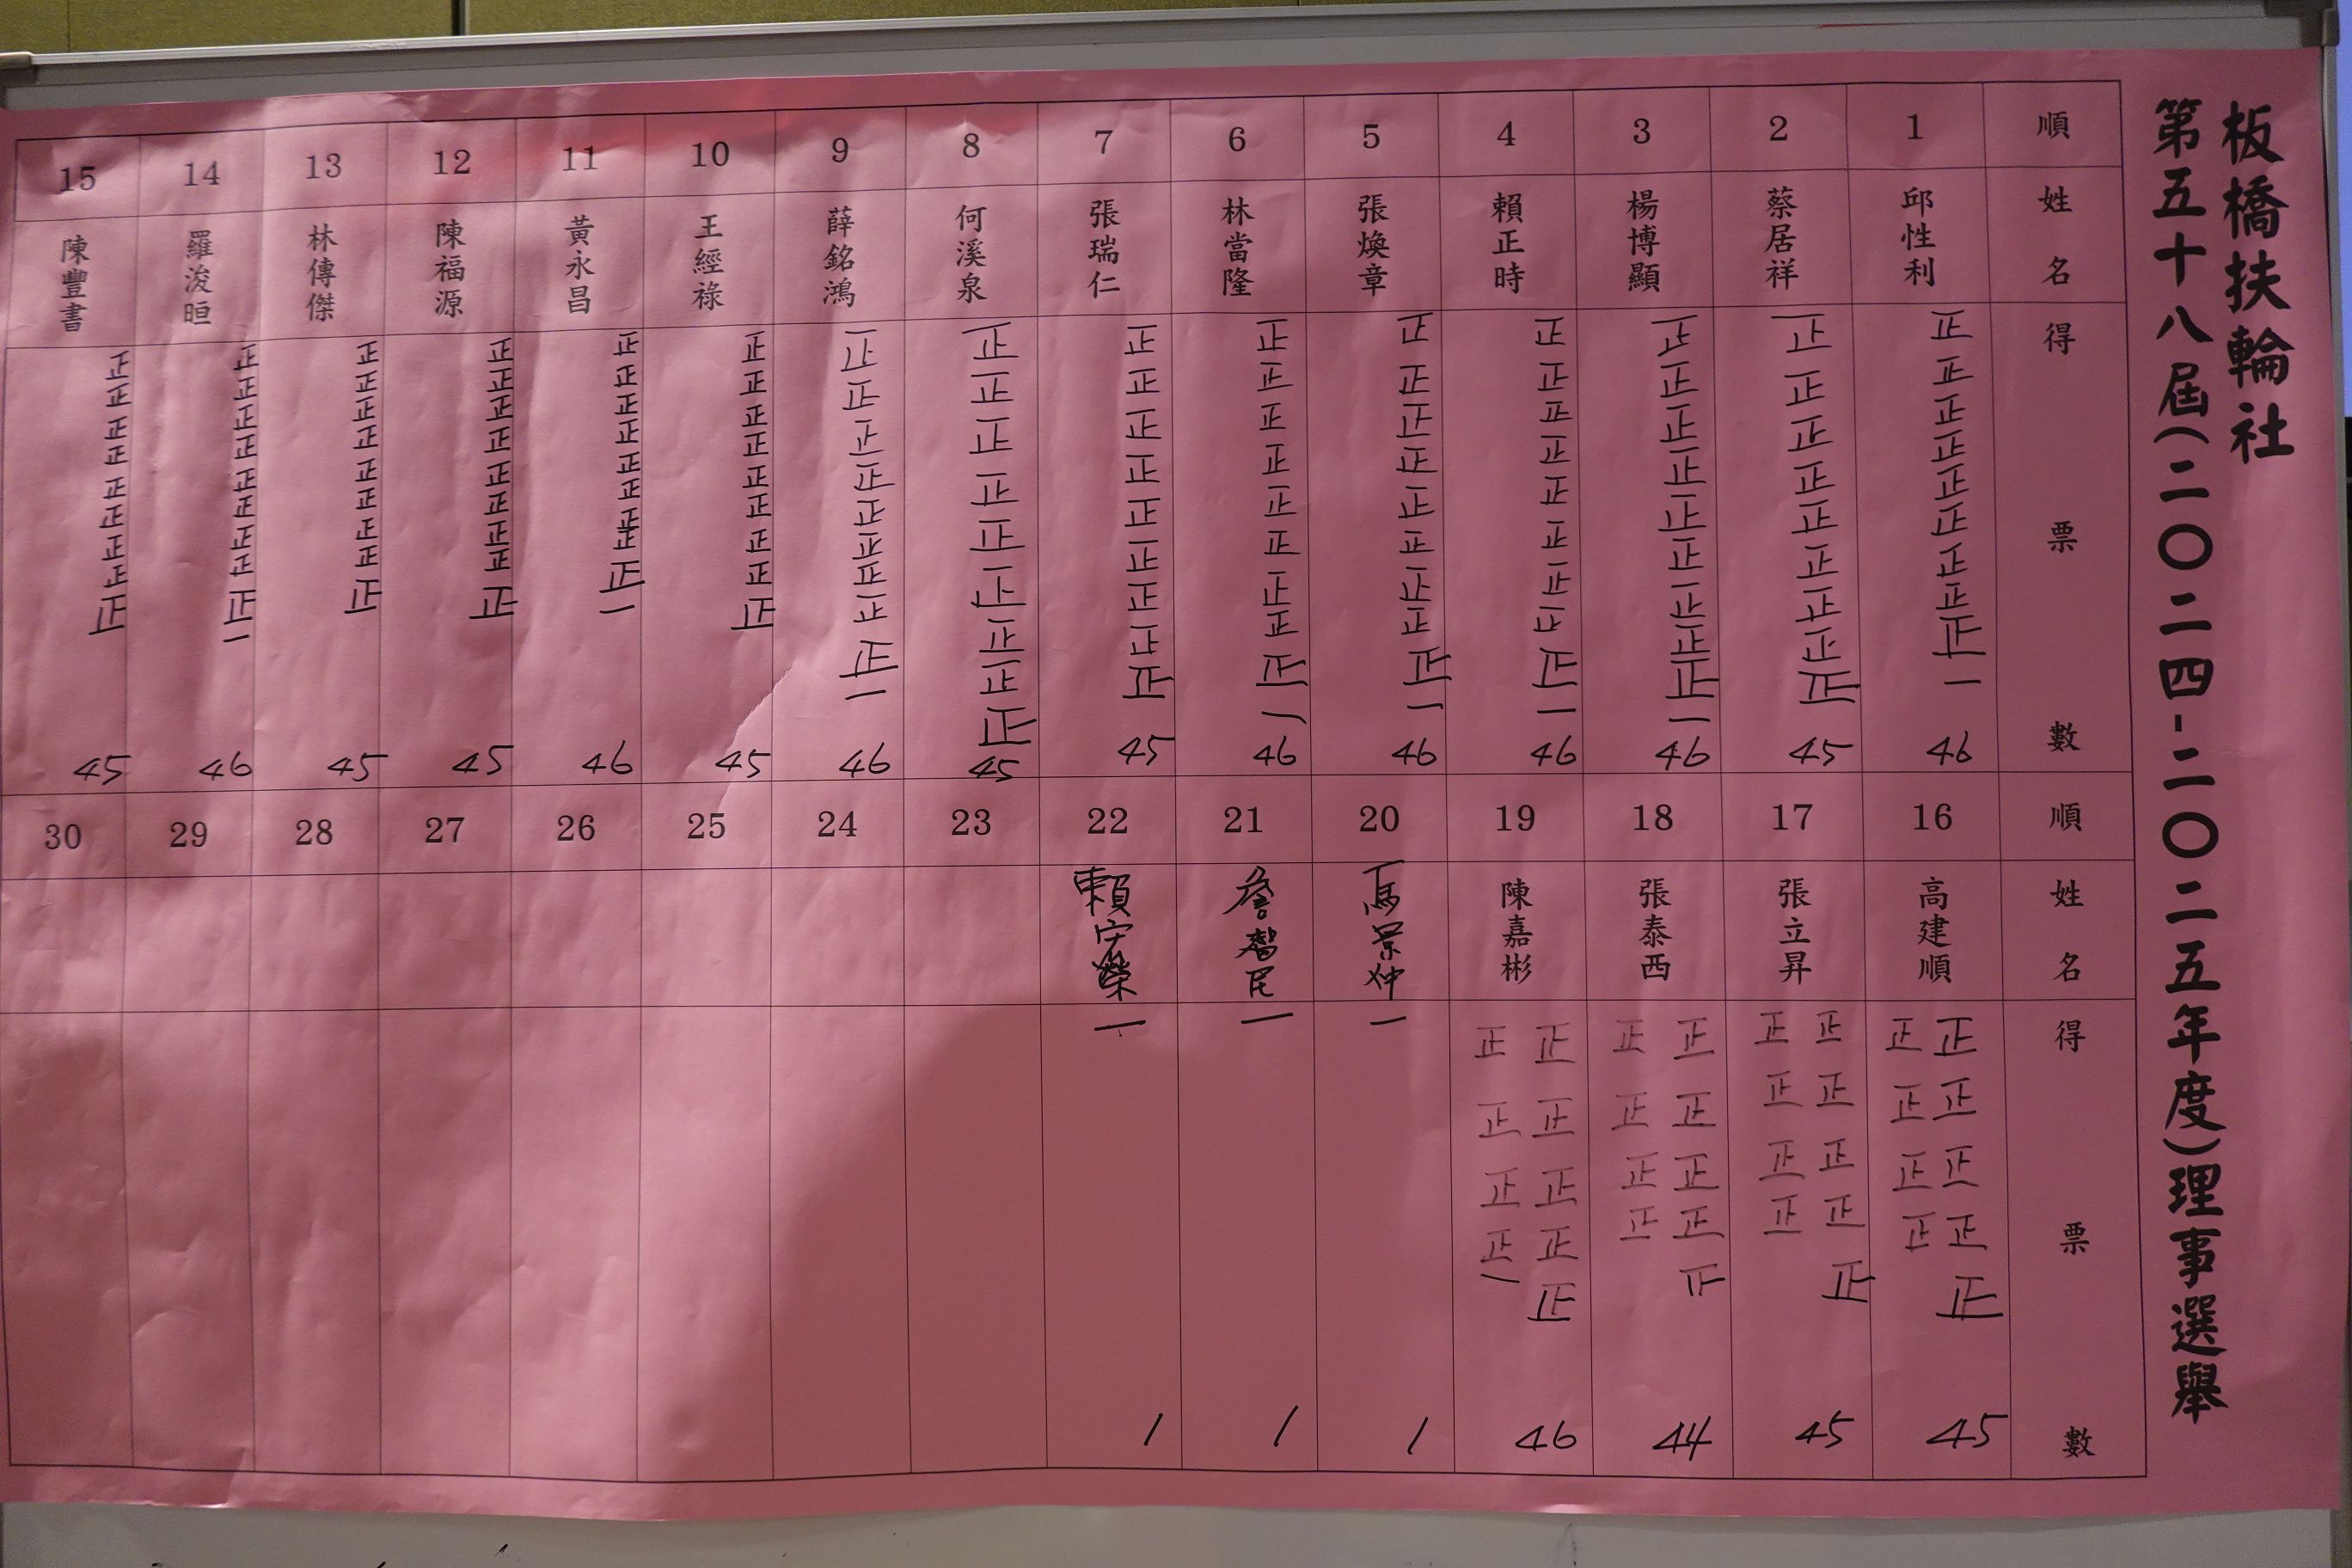 板橋扶輪社
第五十八屆(二〇二四-二〇二五年度)理事選舉
順 1 2 3 4 5 6 7 8 9 10 11 12 13 14 15
姓名 邱性利 蔡居祥 楊博顯 賴正時 張煥章 林當隆 張瑞仁 何溪泉 薛銘鴻 王經祿 黃永昌 陳福源 林傳傑 羅浚晅 陳豐書
得票數
正正正正正正正正正一 46
正正正正正正正正正 45
正正正正正正正正正一 46
正正正正正正正正正一 46
正正正正正正正正正一 46
正正正正正正正正正一 46
正正正正正正正正正 45
正正正正正正正正正 45
正正正正正正正正正一 46
正正正正正正正正正 45
正正正正正正正正正一 46
正正正正正正正正正 45
正正正正正正正正正 45
正正正正正正正正正一 46
正正正正正正正正正 45
順 16 17 18 19 20 21 22 23 24 25 26 27 28 29 30
姓名 高建順 張立昇 張泰西 陳嘉彬 馮景仲 詹智民 賴宏榮
得票數
正正正正正正正正正 45
正正正正正正正正正 45
正正正正正正正正 44
正正正正正正正正正一 46
一 1
一 1
一 1